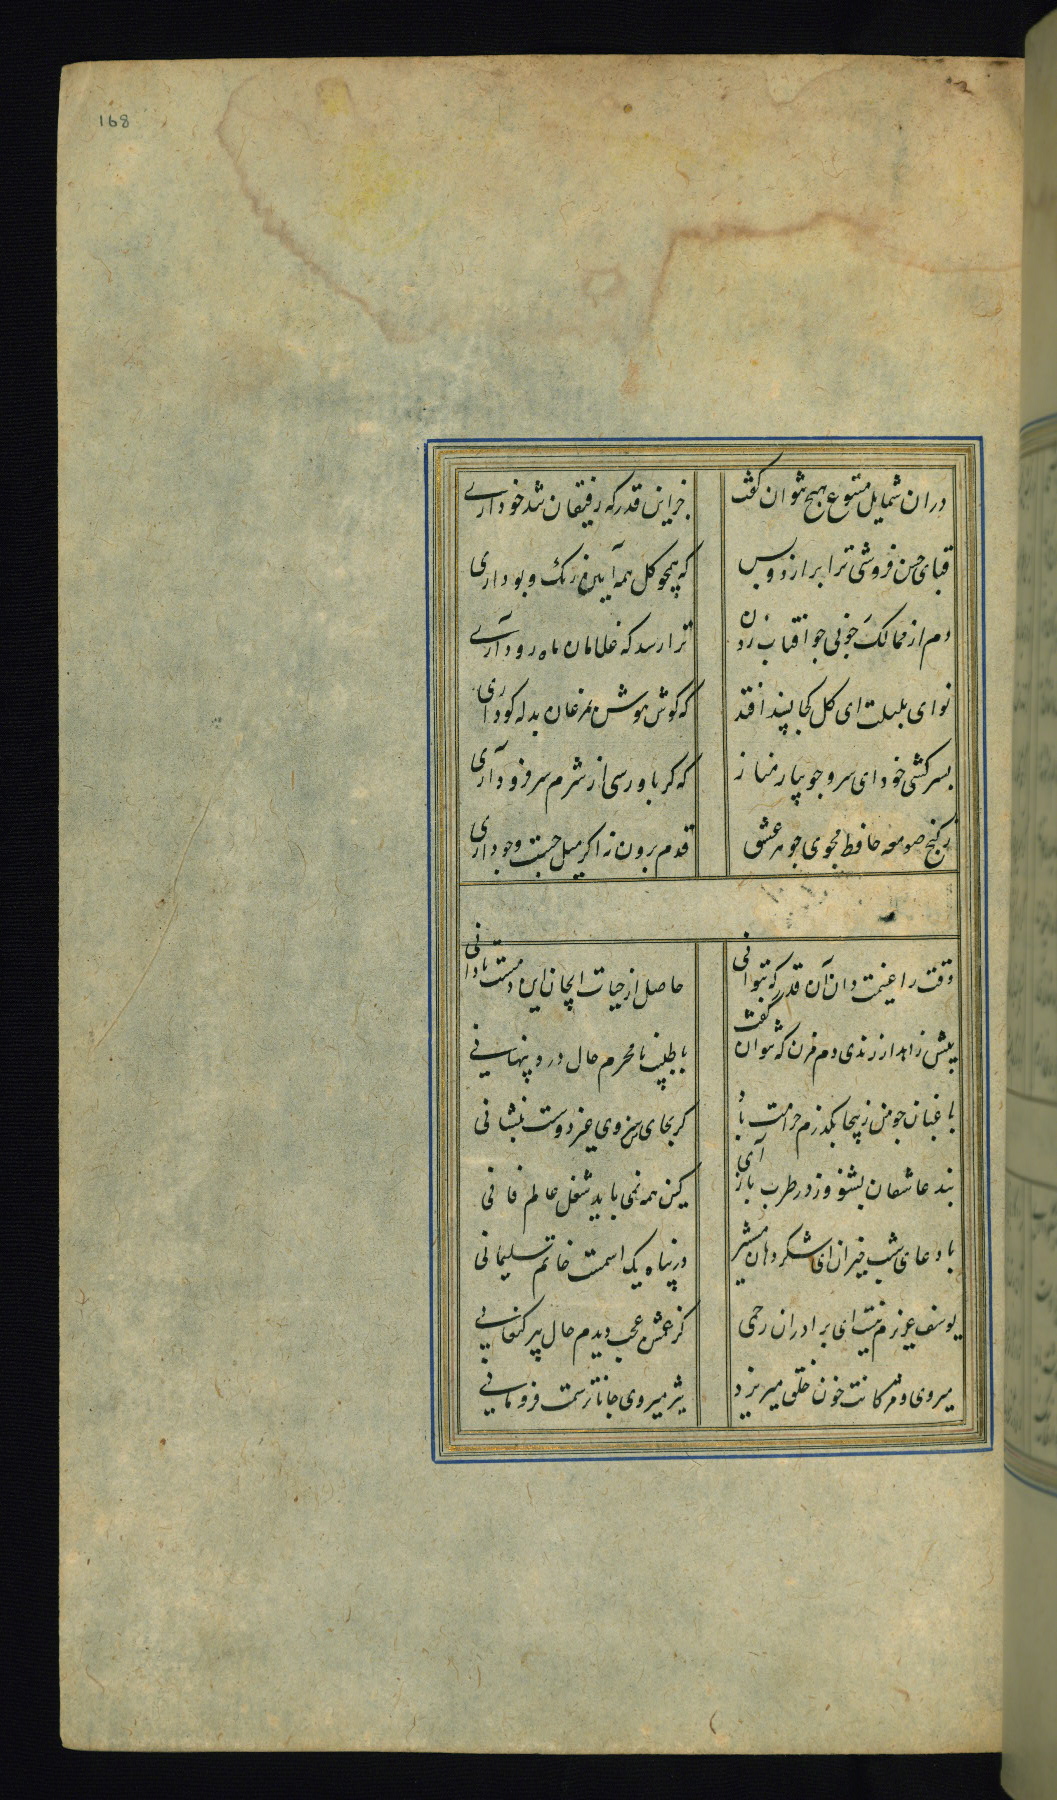 168
دران شمایل مطبوع هیچ نتوان گفت جزاین قدر که رقیبان تندخو داری
قبای حسن فروشی ترا برازد و بس که همچو کل همه آیین رنک و بو داری
دم از ممالک خوبی جو آفتاب زدن ترا رسد که غلامان ماه رو داری
نوای بلبلت ای کل کجا پسند افتد که کوش هوش بمرغان بدله کو داری
بسرکشی خود ای سرو جویبار مناز که کر باو رسی از شرم سر فرود آری
ز کنج صومعه حافظ مجوی جوهر عشق قدم برون نه اکر میل جست و جو داری
وقت را غنیمت دان آن قدر که بتوانی حاصل از حیات ای جان این دمست تا دانی
پیش زاهد از رندی دم مزن که نتوان گفت با طبیب نامحرم حال درد پنهانی
باغبان جو من زینجا بکذرم حرامت باد کر بجای من سروی غیر دوست بنشانی
پند عاشقان بشنو وز در طرب بازآی کین همه نمی باید شغل عالم فانی
با دعای شب خیزان ای شکر دهان مستیز در پناه یک اسمست خاتم سلیمانی
یوسف عزیزم نیست ای برادران رحمی کز غمش عجب دیدم حال پیر کنعانی
میروی و مژکانت خون خلق میریزد تیز میروی جانا ترسمت فرومانی